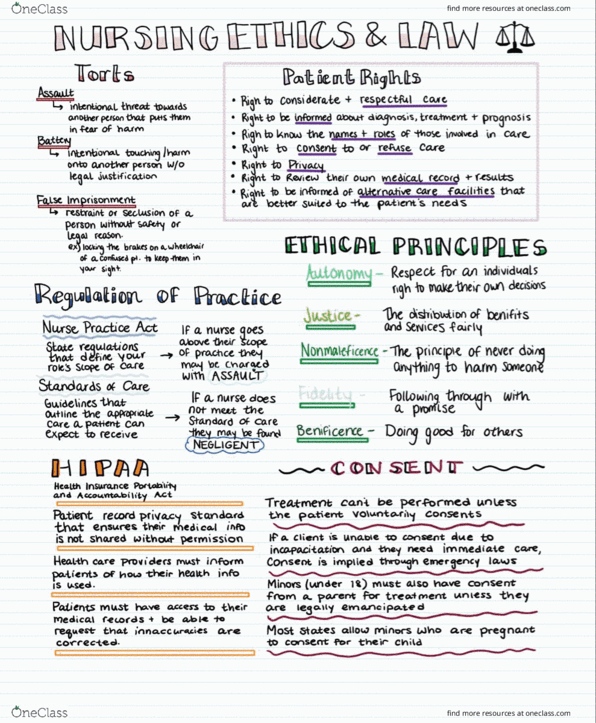 OneClass
find more resources at oneclass.com
NURSING ETHICS & LAW
Torts
Assault
↳ intentional threat towards
another person that puts them
in fear of harm
Battery
↳ intentional touching/harm
onto another person w/o
legal justification
False Imprisonment
↳ restraint or seclusion of a
person without safety or
legal reason.
ex) locking the brakes on a wheelchair
of a confused pt. to keep them in
your sight.
Patient Rights
• Right to considerate + respectful care
• Right to be informed about diagnosis, treatment + prognosis
• Right to know the names + roles of those involved in care
• Right to consent to or refuse care
• Right to Privacy
• Right to Review their own medical record + results
• Right to be informed of alternative care facilities that
are better suited to the patient's needs
ETHICAL PRINCIPLES
Autonomy - Respect for an individuals
righ to make their own decisions
Justice - The distribution of benifits
and services fairly
Nonmaleficence - The principle of never doing
anything to harm someone
Fidelity - Following through with
a promise
Benificence - Doing good for others
Regulation of Practice
Nurse Practice Act
State regulations
that define your
role's scope of care
→ If a nurse goes
above their scope
of practice they
may be charged
with ASSAULT
Standards of Care
Guidelines that
outline the appropriate
care a patient can
expect to receive
→ If a nurse does
not meet the
Standard of care
they may be found
NEGLIGENT
HIPAA
Health Insurance Portability
and Accountability Act
Patient record privacy standard
that ensures their medical info
is not shared without permission
Health care providers must inform
patients of how their health info
is used.
Patients must have access to their
medical records + be able to
request that innaccuries are
corrected.
CONSENT
Treatment can't be performed unless
the patient voluntarily consents
If a client is unable to consent due to
incapacitation and they need immediate care,
Consent is implied through emergency laws
Minors (under 18) must also have consent
from a parent for treatment unless they
are legally emancipated
Most States allow minors who are pregnant
to consent for their child
OneClass
find more resources at oneclass.com